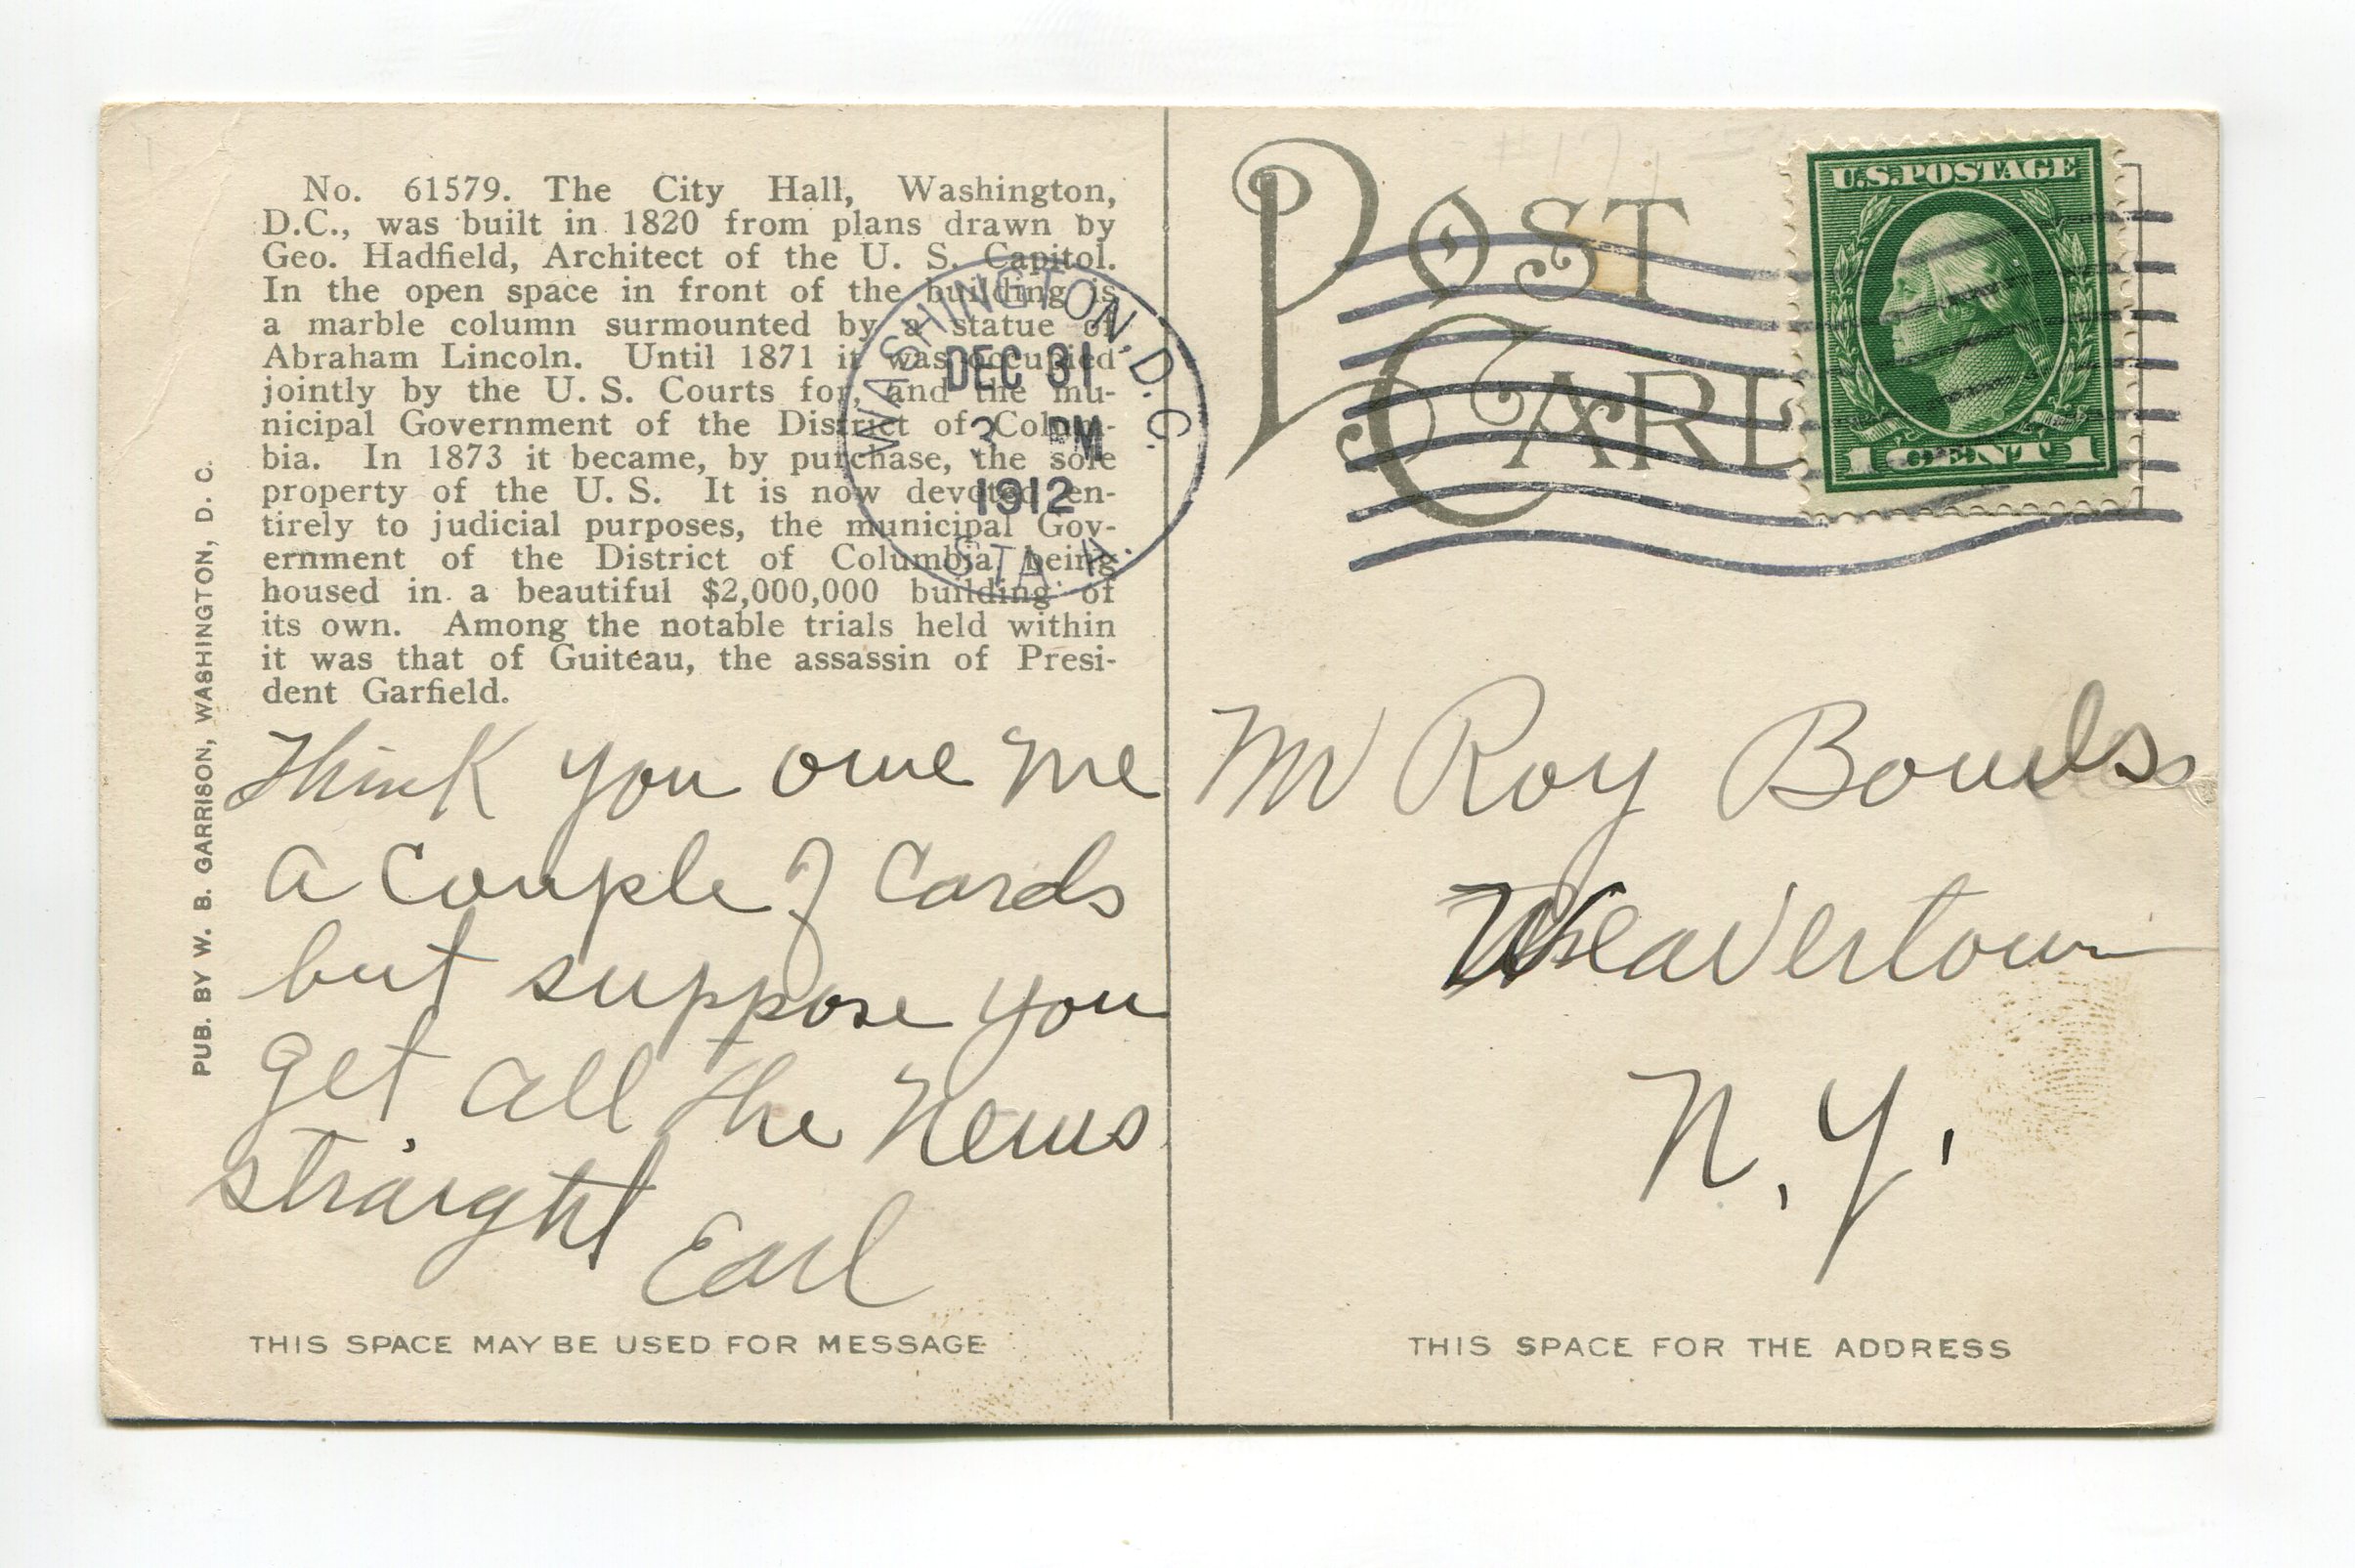 No. 61579. The City Hall, Washington,
D.C., was built in 1820 from plans drawn by
Geo. Hadfield, Architect of the U. S. Capitol.
In the open space in front of the building is
a marble column surmounted by a statue of
Abraham Lincoln. Until 1871 it was occupied
jointly by the U. S. Courts for, and the mu-
nicipal Government of the District of Colum-
bia. In 1873 it became, by purchase, the sole
property of the U. S. It is now devoted en-
tirely to judicial purposes, the municipal Gov-
ernment of the District of Columbia being
housed in a beautiful $2,000,000 building of
its own. Among the notable trials held within
it was that of Guiteau, the assassin of Presi-
dent Garfield.
PUB. BY W. B. GARRISON, WASHINGTON, D. C.
WASHINGTON, D.C.
DEC 31
3 PM
1912
STA. H.
Think you owe me
a couple of cards
but suppose you
get all the News
straight
Earl
THIS SPACE MAY BE USED FOR MESSAGE
POST
CARD
U.S. POSTAGE
1 CENT 1
Mr Roy
Weavertown
N. Y.
THIS SPACE FOR THE ADDRESS